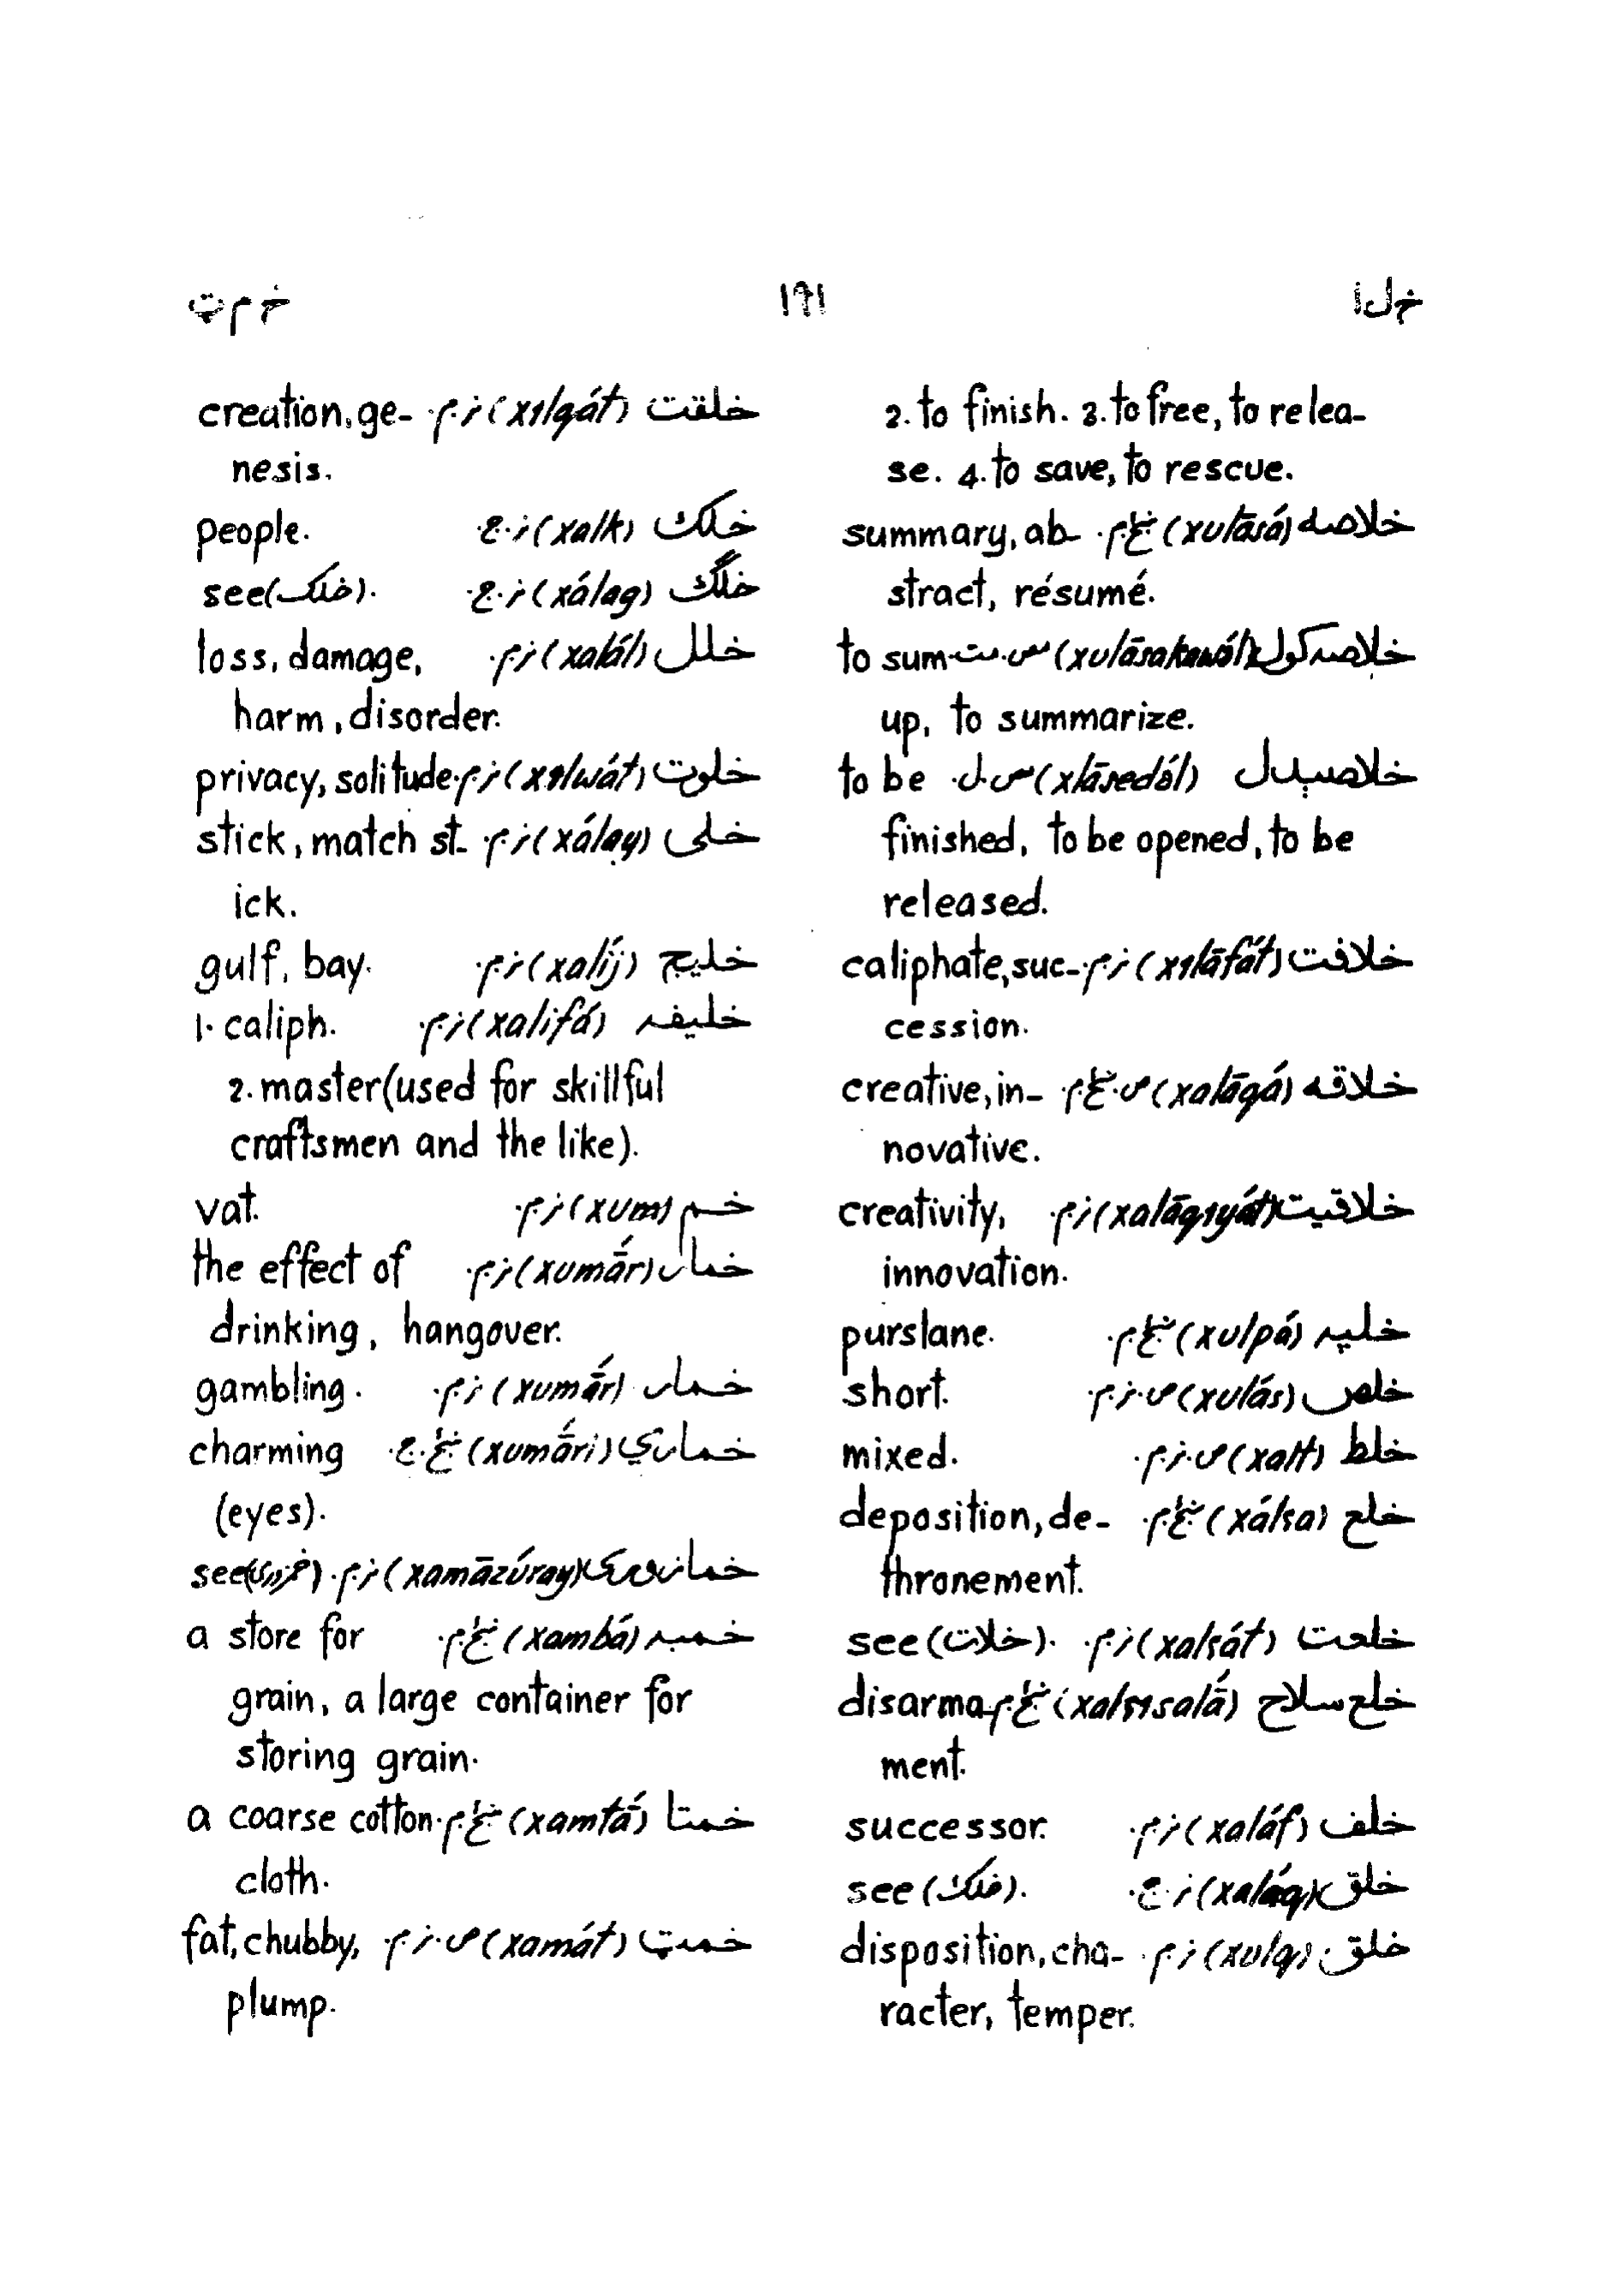 خ ل ا ۱۹۱ خ م ټ
2. to finish. 3. to free, to relea-
se. 4. to save, to rescue.
خلاصه (xulāsá) غ.م. summary, ab-
stract, résumé.
خلاصه کول (xulāsakawə́l) س.مت. to sum
up, to summarize.
خلاصېدل (xlāsedə́l) س.ل. to be
finished, to be opened, to be
released.
خلافت (xɪlāfát) ز.م. caliphate, suc-
cession.
خلاقه (xalāqá) ص.غ.م. creative, in-
novative.
خلاقيت (xalāqɪyát) ز.م. creativity,
innovation.
خلپه (xulpá) غ.م. purslane.
خلص (xulás) ص.ز.م. short.
خلط (xalt) ص.ز.م. mixed.
خلع (xálʕa) غ.م. deposition, de-
thronement.
خلعت (xalʕát) ز.م. see (خلات).
خلع سلاح (xalʕɪsalā́) غ.م. disarma
ment.
خلف (xaláf) ز.م. successor.
خلق (xaláq) ز.ج. see (خلک).
خلق (xulq) ز.م. disposition, cha-
racter, temper.
خلقت (xɪlqát) ز.م. creation, ge-
nesis.
خلک (xalk) ز.ج. people.
خلګ (xálag) ز.ج. see (خلک).
خلل (xalál) ز.م. loss, damage,
harm, disorder.
خلوت (xɪlwát) ز.م. privacy, solitude
خلی (xálay) ز.م. stick, match st-
ick.
خليج (xalíj) ز.م. gulf, bay.
خليفه (xalifá) ز.م. 1. caliph.
2. master (used for skillful
craftsmen and the like).
خم (xum) ز.م. vat.
خمار (xumā́r) ز.م. the effect of
drinking, hangover.
خمار (xumā́r) ز.م. gambling.
خماري (xumā́ri) غ.ج. charming
(eyes).
خمازوری (xamāzúray) ز.م. see
خمبه (xambá) غ.م. a store for
grain, a large container for
storing grain.
خمتا (xamtā́) غ.م. a coarse cotton
cloth.
خمټ (xamát) ص.ز.م. fat, chubby,
plump.